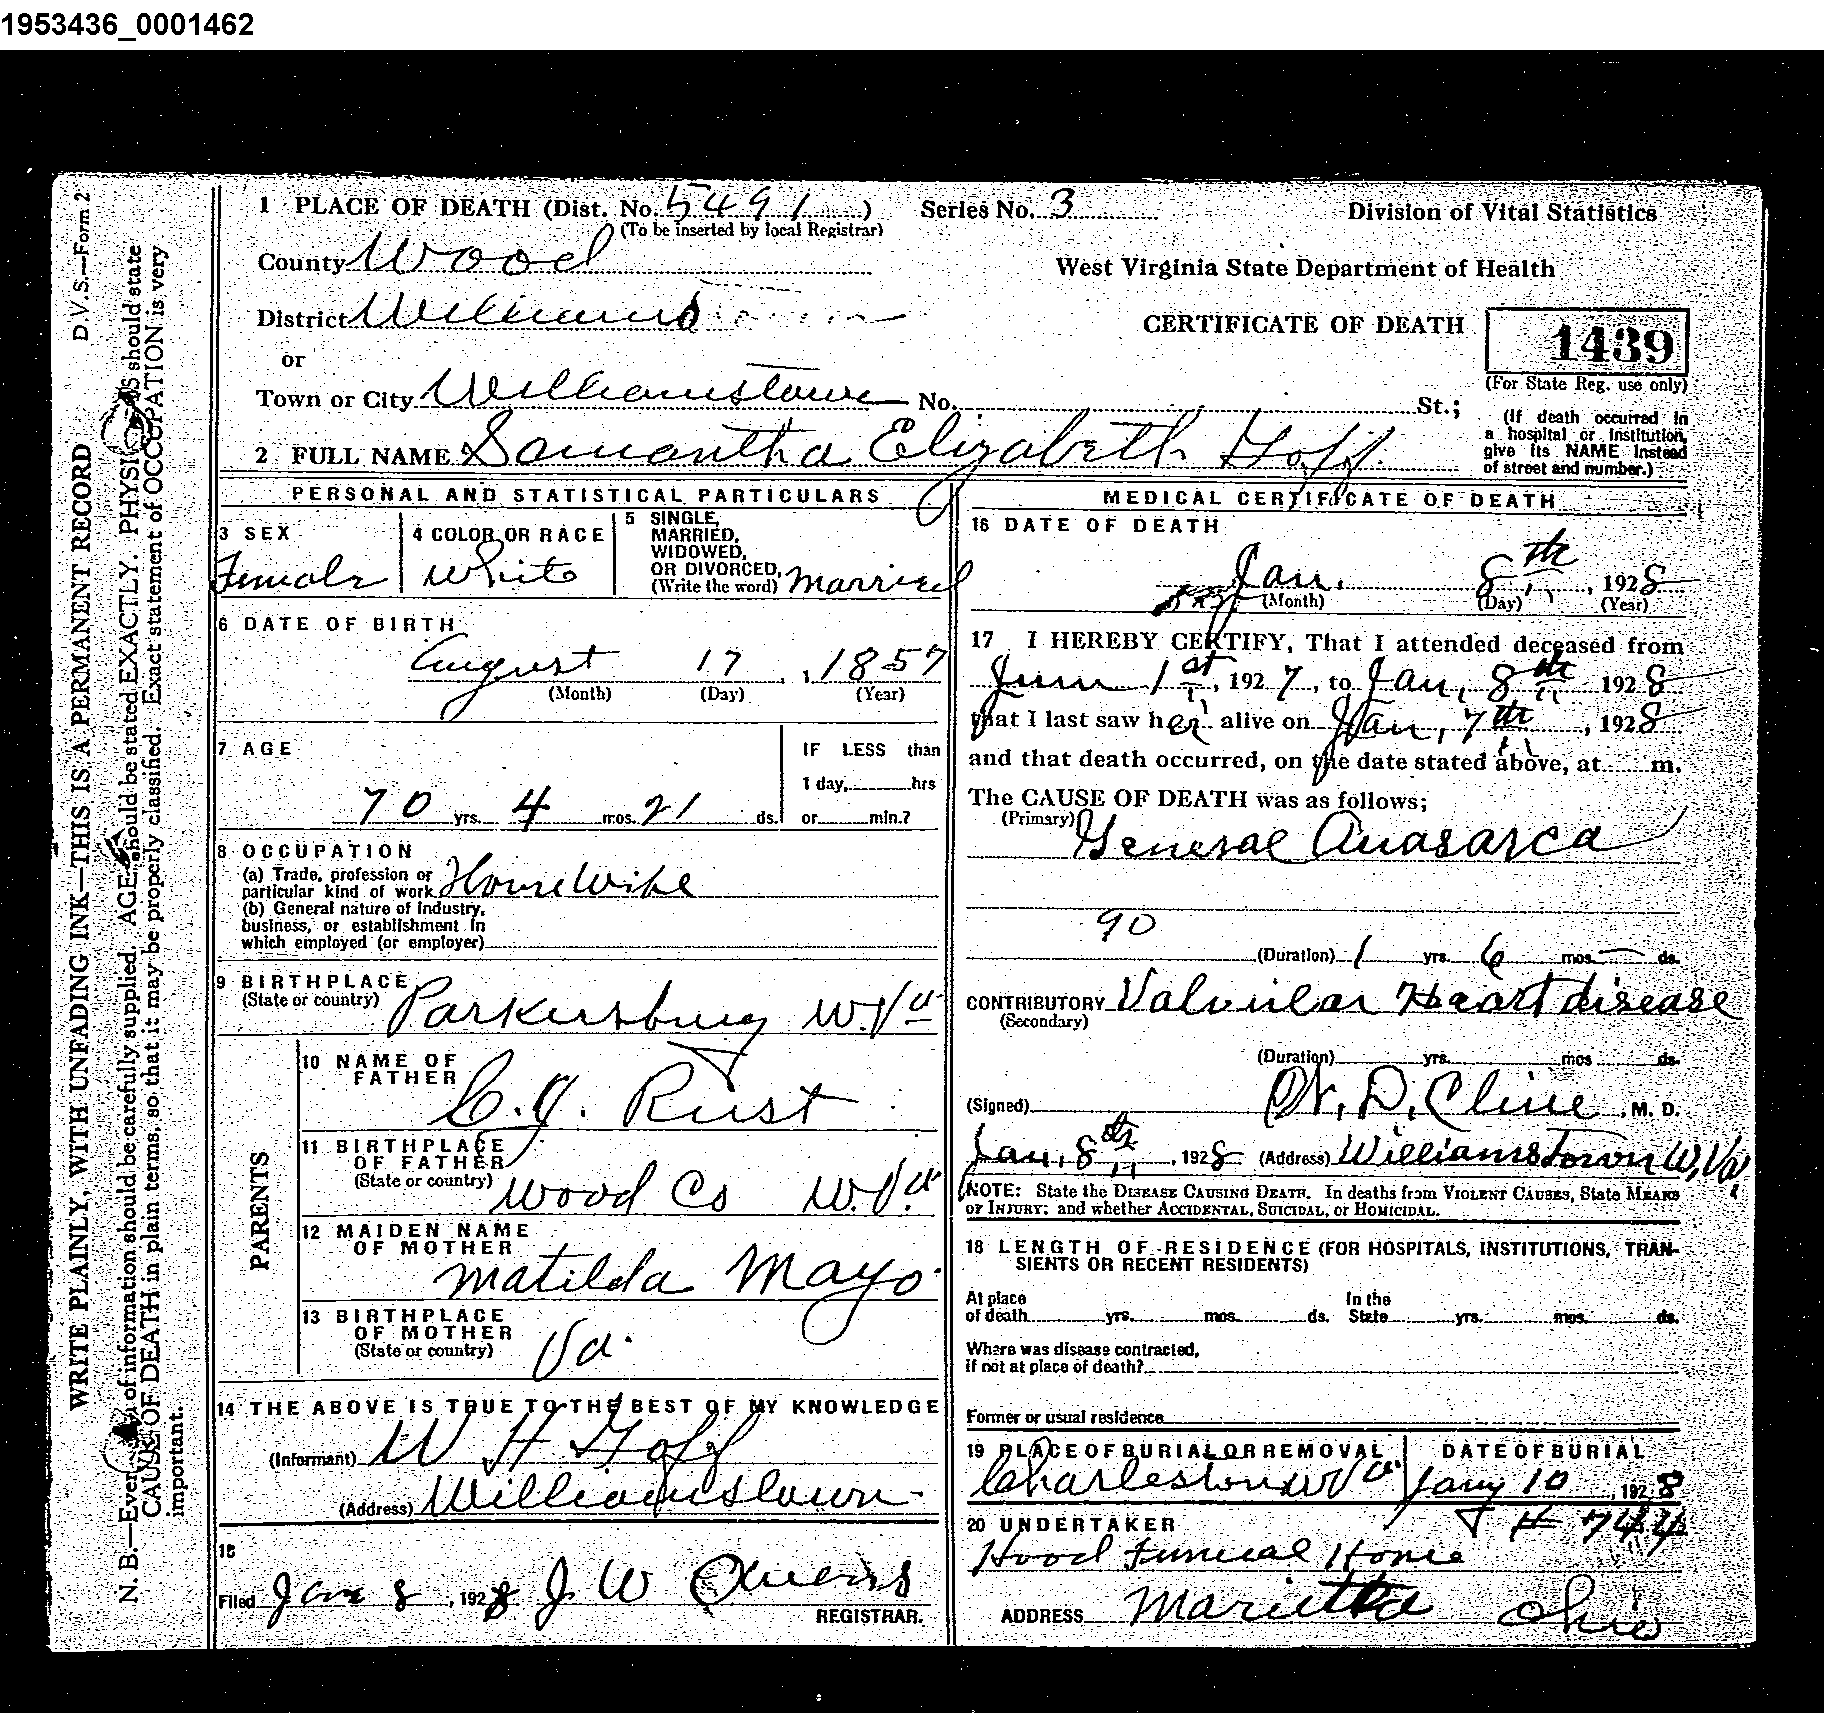 1953436_0001462
D.V.S.—Form 2
WRITE PLAINLY, WITH UNFADING INK—THIS IS A PERMANENT RECORD
N. B.—Every of information should be carefully supplied. AGE should be stated EXACTLY. PHYSI S should state
CAUSE OF DEATH in plain terms, so that it may be properly classified. Exact statement of OCCUPATION is very
important.
1 PLACE OF DEATH (Dist. No. 5491 ) Series No. 3 Division of Vital Statistics
(To be inserted by local Registrar)
County Wood
West Virginia State Department of Health
District Williams
CERTIFICATE OF DEATH
1439
or
(For State Reg. use only)
Town or City Williamstown No. St.;
(If death occurred in
a hospital or institution,
give its NAME instead
of street and number.)
2 FULL NAME Samantha Elizabeth Goff
PERSONAL AND STATISTICAL PARTICULARS
3 SEX
Female
4 COLOR OR RACE
White
5 SINGLE,
MARRIED,
WIDOWED,
OR DIVORCED,
(Write the word) Married
6 DATE OF BIRTH
August 17, 1857
(Month) (Day) (Year)
7 AGE
IF LESS than
1 day, hrs
70 yrs. 4 mos. 21 ds. or min.?
8 OCCUPATION
(a) Trade, profession or
particular kind of work HouseWife
(b) General nature of industry,
business, or establishment in
which employed (or employer)
9 BIRTHPLACE
(State or country) Parkersburg W.Va
PARENTS
10 NAME OF
FATHER C.J. Rust
11 BIRTHPLACE
OF FATHER
(State or country) Wood Co W.Va
12 MAIDEN NAME
OF MOTHER
Matilda Mayo
13 BIRTHPLACE
OF MOTHER
(State or country) Va.
14 THE ABOVE IS TRUE TO THE BEST OF MY KNOWLEDGE
(Informant) W H Goff
(Address) Williamstown
15
Filed Jan 8, 1928 J. W Owens
REGISTRAR.
MEDICAL CERTIFICATE OF DEATH
16 DATE OF DEATH
Jan. 8th, 1928
(Month) (Day) (Year)
17 I HEREBY CERTIFY, That I attended deceased from
June 1st, 1927, to Jan, 8th 1928
that I last saw her alive on Jan, 7th, 1928
and that death occurred, on the date stated above, at m.
The CAUSE OF DEATH was as follows;
(Primary) General Anasarca
90
(Duration) 1 yrs. 6 mos — ds.
CONTRIBUTORY Valvular Heart disease
(Secondary)
(Duration) yrs. mos ds.
(Signed) W. D. Cline, M. D.
Jan, 8th, 1928 (Address) Williamstown W, Va,
NOTE: State the DISEASE CAUSING DEATH. In deaths from VIOLENT CAUSES, State MEANS
OF INJURY; and whether ACCIDENTAL, SUICIDAL, or HOMICIDAL.
18 LENGTH OF RESIDENCE (FOR HOSPITALS, INSTITUTIONS, TRAN-
SIENTS OR RECENT RESIDENTS)
At place In the
of death yrs. mos. ds. State yrs. mos. ds.
Where was disease contracted,
if not at place of death?
Former or usual residence
19 PLACE OF BURIAL OR REMOVAL DATE OF BURIAL
Charleston W Va. Jany 10, 1928
20 UNDERTAKER # 744
Hood Funeral Home
ADDRESS Marietta Ohio